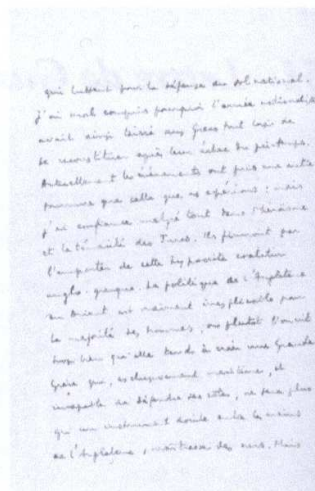 qui luttent pour la défense du sol national.
J'ai mal compris pourquoi l'armée nationaliste
avait ainsi laissé aux Grecs tout loisir de
se reconstituer après leur échec du printemps.
Actuellement les événements ont pris une autre
tournure que celle que nous espérions ; mais
j'ai confiance malgré tout dans l'héroïsme
et la ténacité des Turcs. Ils finiront par
l'emporter de cette hypocrite coalition
anglo-grecque. La politique de l'Angleterre
en Orient est vraiment inexplicable pour
la majorité des hommes, ou plutôt
trop bien qu'elle tend à créer une Grande
Grèce qui, exclusivement maritime, et
incapable de défendre ses côtes, ne sera plus
qu'un instrument docile entre les mains
de l'Angleterre, maîtresse des mers. Mais